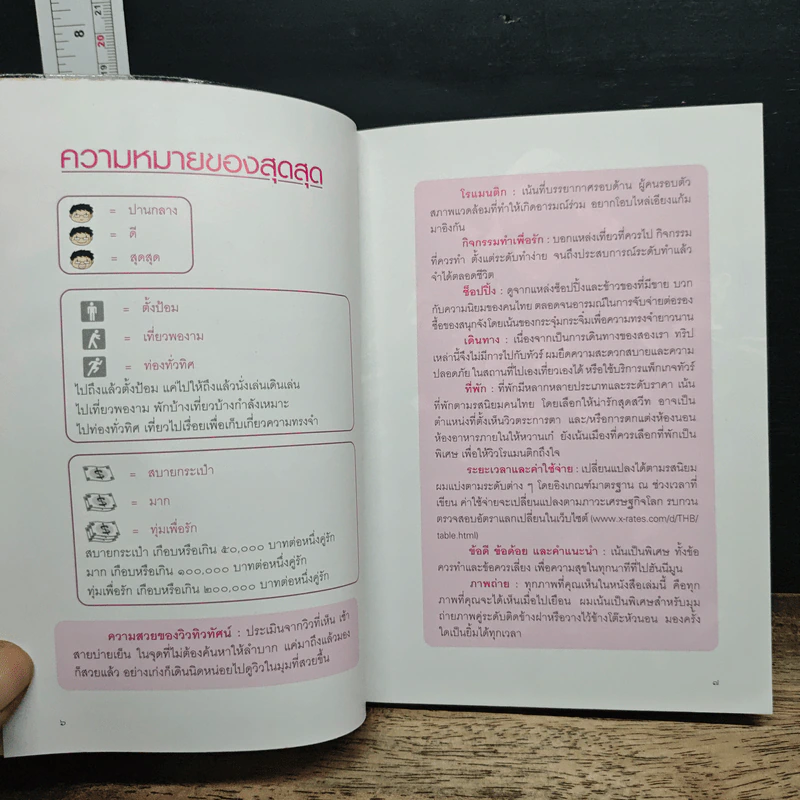 8
21
20
19
ความหมายของสุดสุด
= ปานกลาง
= ดี
= สุดสุด
= ตั้งป้อม
= เที่ยวพองาม
= ท่องทั่วทิศ
ไปถึงแล้วตั้งป้อม แค่ไปให้ถึงแล้วนั่งเล่นเดินเล่น
ไปเที่ยวพองาม พักบ้างเที่ยวบ้างกำลังเหมาะ
ไปท่องทั่วทิศ เที่ยวไปเรื่อยเพื่อเก็บเกี่ยวความทรงจำ
= สบายกระเป๋า
= มาก
= ทุ่มเพื่อรัก
สบายกระเป๋า เกือบหรือเกิน ๕๐,๐๐๐ บาทต่อหนึ่งคู่รัก
มาก เกือบหรือเกิน ๑๐๐,๐๐๐ บาทต่อหนึ่งคู่รัก
ทุ่มเพื่อรัก เกือบหรือเกิน ๒๐๐,๐๐๐ บาทต่อหนึ่งคู่รัก
ความสวยของวิวทิวทัศน์ : ประเมินจากวิวที่เห็น เช้า
สายบ่ายเย็น ในจุดที่ไม่ต้องค้นหาให้ลำบาก แค่มาถึงแล้วมอง
ก็สวยแล้ว อย่างเก่งก็เดินนิดหน่อยไปดูวิวในมุมที่สวยขึ้น
๖
โรแมนติก : เน้นที่บรรยากาศรอบด้าน ผู้คนรอบตัว
สภาพแวดล้อมที่ทำให้เกิดอารมณ์ร่วม อยากโอบไหล่เอียงแก้ม
มาอิงกัน
กิจกรรมทำเพื่อรัก : บอกแหล่งเที่ยวที่ควรไป กิจกรรม
ที่ควรทำ ตั้งแต่ระดับทำง่าย จนถึงประสบการณ์ระดับทำแล้ว
จำได้ตลอดชีวิต
ช็อปปิ้ง : ดูจากแหล่งช็อปปิ้งและข้าวของที่มีขาย บวก
กับความนิยมของคนไทย ตลอดจนอารมณ์ในการจับจ่ายต่อรอง
ซื้อของสนุกจังโดยเน้นของกระจุ๋มกระจิ๋มเพื่อความทรงจำยาวนาน
เดินทาง : เนื่องจากเป็นการเดินทางของสองเรา ทริป
เหล่านี้จึงไม่มีการไปกับทัวร์ ผมยึดความสะดวกสบายและความ
ปลอดภัย ในสถานที่ไปเองเที่ยวเองได้ หรือใช้บริการแพ็กเกจทัวร์
ที่พัก : ที่พักมีหลากหลายประเภทและระดับราคา เน้น
ที่พักตามรสนิยมคนไทย โดยเลือกให้น่ารักสุดสวีท อาจเป็น
ตำแหน่งที่ตั้งเห็นวิวตระการตา และ/หรือการตกแต่งห้องนอน
ห้องอาหารภายในให้หวานเก๋ ยังเน้นเมืองที่ควรเลือกที่พักเป็น
พิเศษ เพื่อให้วิวโรแมนติกถึงใจ
ระยะเวลาและค่าใช้จ่าย : เปลี่ยนแปลงได้ตามรสนิยม
ผมแบ่งตามระดับต่าง ๆ โดยอิงเกณฑ์มาตรฐาน ณ ช่วงเวลาที่
เขียน ค่าใช้จ่ายจะเปลี่ยนแปลงตามภาวะเศรษฐกิจโลก รบกวน
ตรวจสอบอัตราแลกเปลี่ยนในเว็บไซต์ (www.x-rates.com/d/THB/
table.html)
ข้อดี ข้อด้อย และคำแนะนำ : เน้นเป็นพิเศษ ทั้งข้อ
ควรทำและข้อควรเลี่ยง เพื่อความสุขในทุกนาทีที่ไปฮันนีมูน
ภาพถ่าย : ทุกภาพที่คุณเห็นในหนังสือเล่มนี้ คือทุก
ภาพที่คุณจะได้เห็นเมื่อไปเยือน ผมเน้นเป็นพิเศษสำหรับมุม
ถ่ายภาพคู่ระดับติดข้างฝาหรือวางไว้ข้างโต๊ะหัวนอน มองครั้ง
ใดเป็นยิ้มได้ทุกเวลา
๗